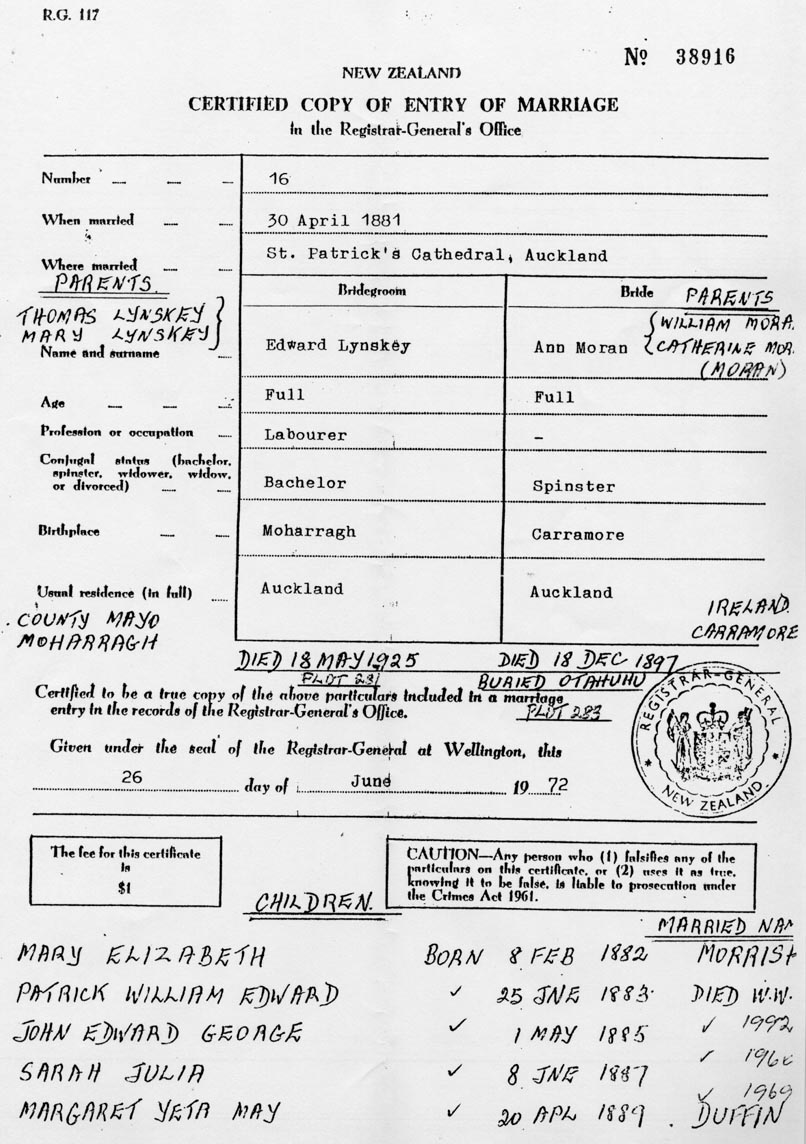 R.G. 117
Nº 38916
NEW ZEALAND
CERTIFIED COPY OF ENTRY OF MARRIAGE
In the Registrar-General's Office
Number 16
When married 30 April 1881
Where married St. Patrick's Cathedral, Auckland
PARENTS. Bridegroom Bride PARENTS
THOMAS LYNSKEY WILLIAM MORA
MARY LYNSKEY Edward Lynskey Ann Moran CATHERINE MOR
Name and surname (MORAN)
Age Full Full
Profession or occupation Labourer –
Conjugal status (bachelor,
spinster, widower, widow,
or divorced) Bachelor Spinster
Birthplace Moharragh Carramore
Usual residence (in full) Auckland Auckland
COUNTY MAYO IRELAND.
MOHARRAGH CARRAMORE
DIED 18 MAY 1925 DIED 18 DEC 1897
PLOT 281 BURIED OTAHUHU
Certified to be a true copy of the above particulars included in a marriage
entry in the records of the Registrar-General's Office. PLOT 283
REGISTRAR-GENERAL
NEW ZEALAND
Given under the seal of the Registrar-General at Wellington, this
26 day of June 1972
The fee for this certificate
is
$1
CAUTION—Any person who (1) falsifies any of the
particulars on this certificate, or (2) uses it as true,
knowing it to be false, is liable to prosecution under
the Crimes Act 1961.
CHILDREN. MARRIED NAM
MARY ELIZABETH BORN 8 FEB 1882
PATRICK WILLIAM EDWARD ✓ 25 JNE 1883 DIED W.W.
JOHN EDWARD GEORGE ✓ 1 MAY 1885 ✓ 1992
SARAH JULIA ✓ 8 JNE 1887 ✓
✓ 1969
MARGARET YETA MAY ✓ 20 APL 1889. DUFFIN